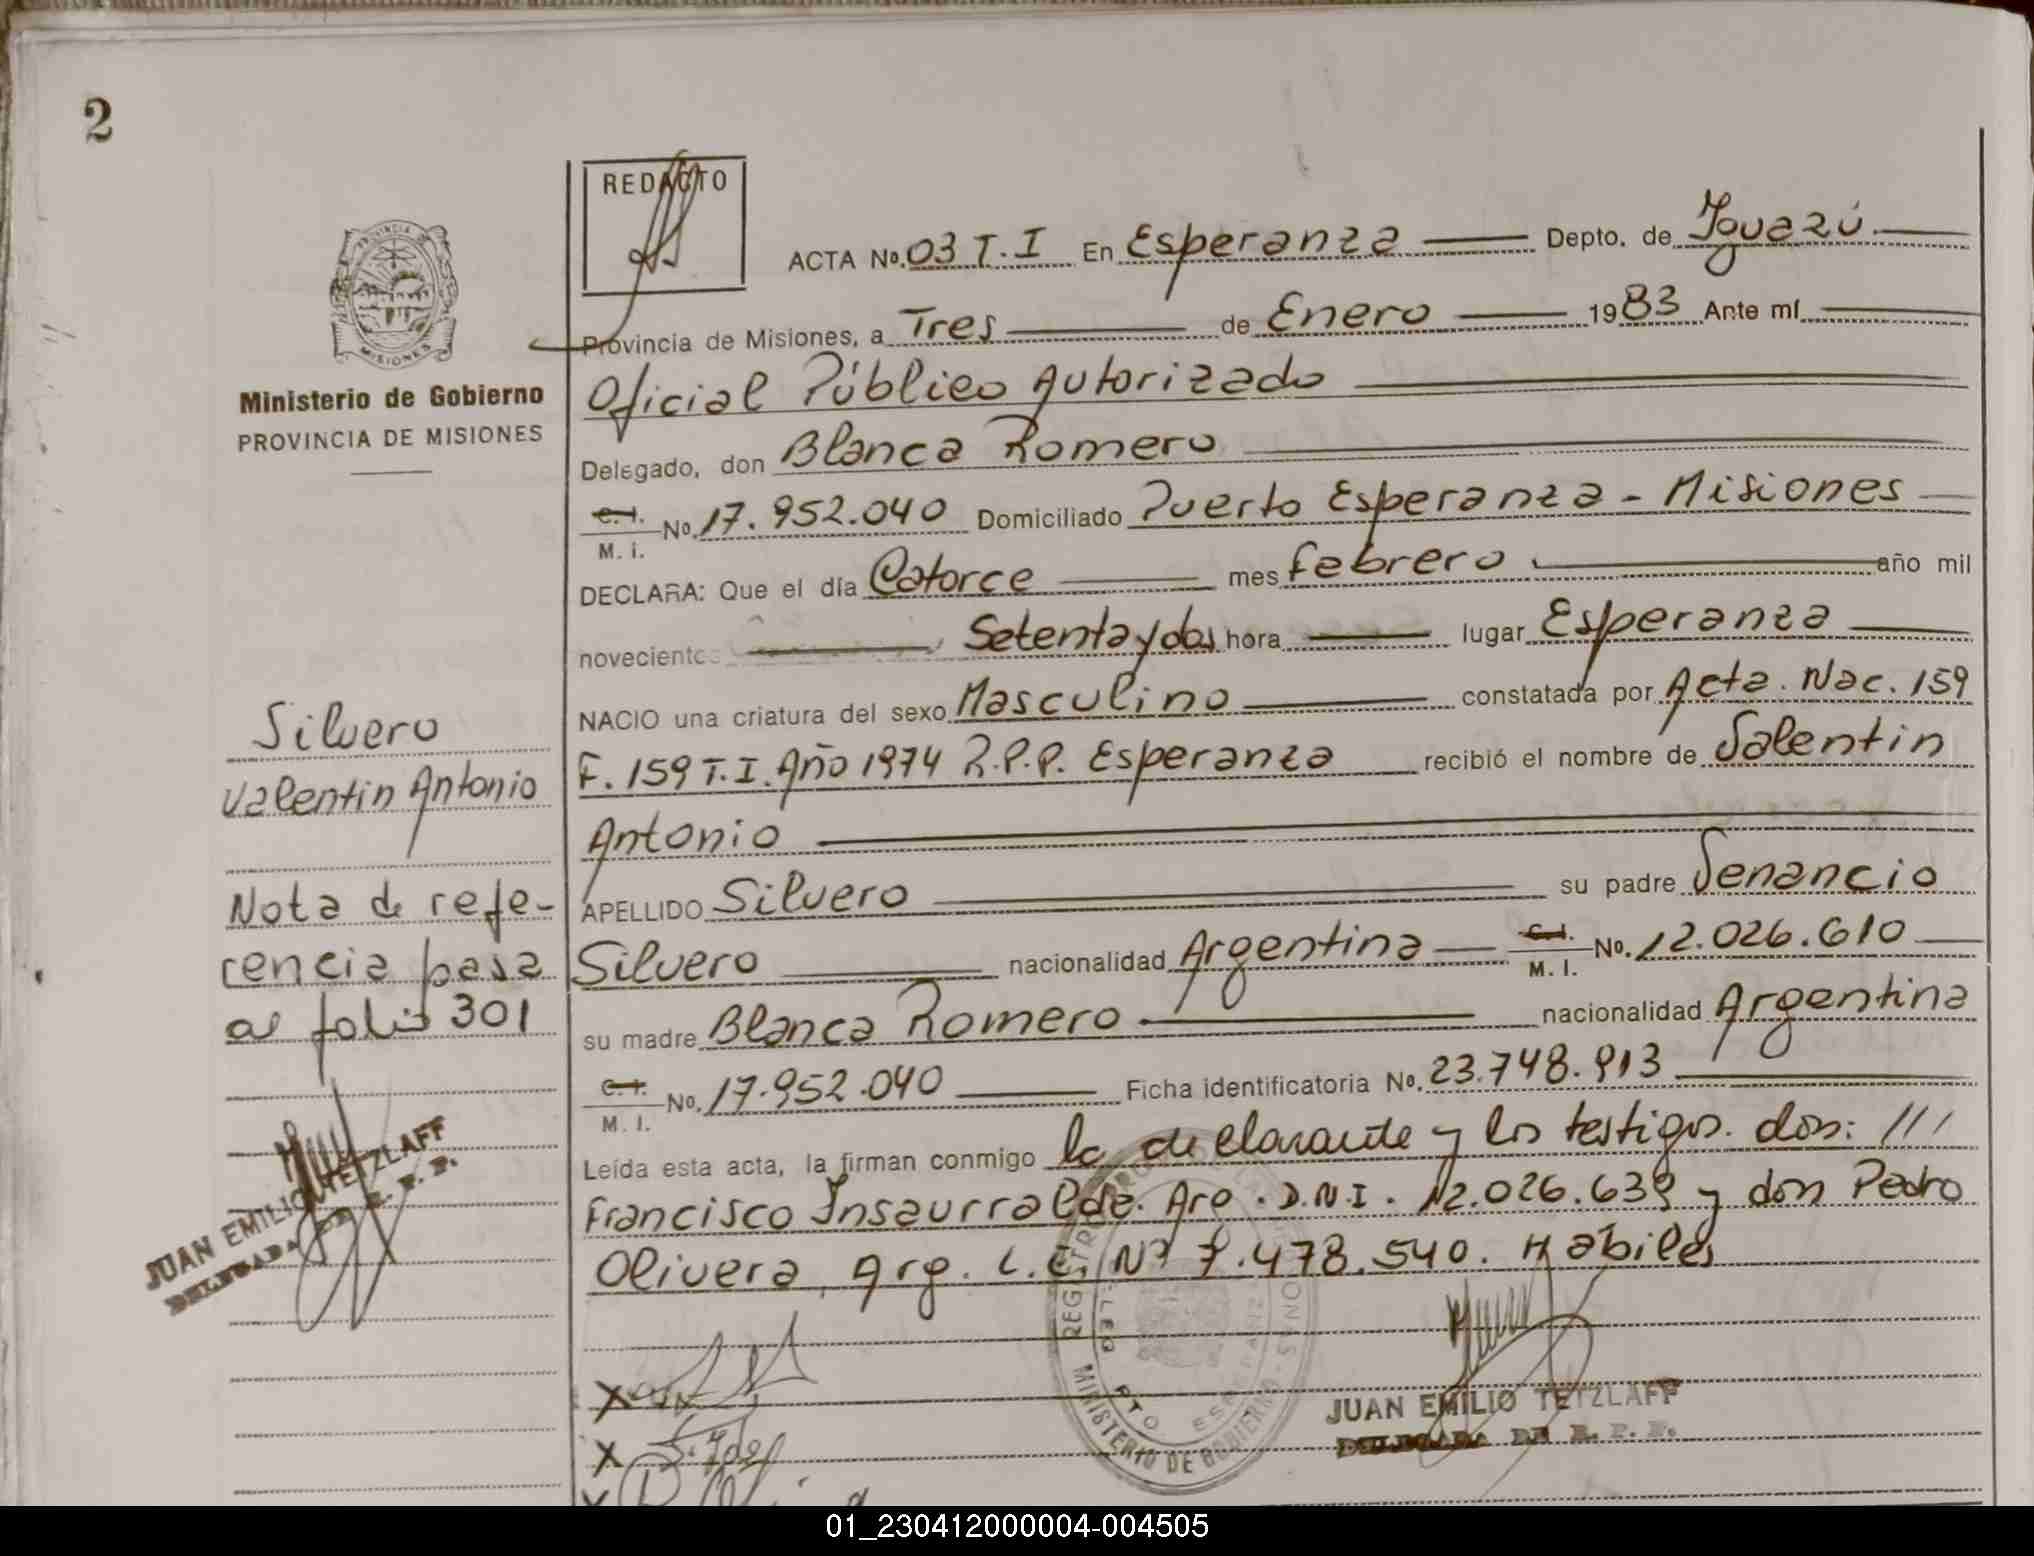 2
REDACTO
PROVINCIA DE
MISIONES
Ministerio de Gobierno
PROVINCIA DE MISIONES
ACTA No. 03 T.I En Esperanza Depto. de Yguazú
Provincia de Misiones, a Tres de Enero 1983 Ante mí
Oficial Público Autorizado
Delegado, don Blanca Romero
C. I. M. i. No. 17.952.040 Domiciliado Puerto Esperanza - Misiones
DECLARA: Que el día Catorce mes febrero año mil
novecientos Setenta y dos hora lugar Esperanza
NACIO una criatura del sexo Masculino constatada por Acta. Nac. 159
F. 159 T.I. Año 1974 R.P.P. Esperanza recibió el nombre de Valentin
Antonio
APELLIDO Silvero su padre Venancio
Silvero nacionalidad Argentina C. I. M. I. No. 12.026.610
su madre Blanca Romero nacionalidad Argentina
C. I. M. I. No. 17.952.040 Ficha identificatoria No. 23.748.913
Leída esta acta, la firman conmigo la declarante y los testigos. don: ///
Francisco Insaurralde. Arg. D.N.I. 12.026.639 y don Pedro
Olivera, Arg. L.E. Nº 7.478.540. Habiles
Silvero
Valentin Antonio
Nota de refe-
rencia pasa
al folio 301
JUAN EMILIO TETZLAFF
DELEGADA DE R. P. P.
MINISTERIO DE GOBIERNO
JUAN EMILIO TETZLAFF
DELEGADA DE R. P. P.
X
X
01_230412000004-004505